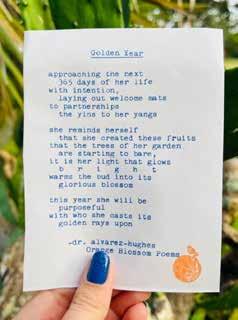 Golden Year
approaching the next
365 days of her life
with intention,
laying out welcome mats
to partnerships
the yins to her yangs
she reminds herself
that she created these fruits
that the trees of her garden
are starting to bare,
it is her light that glows
b r i g h t
warms the bud into its
glorious blossom
this year she will be
purposeful
with who she casts its
golden rays upon
-dr. alvarez-hughes
Orange Blossom Poems